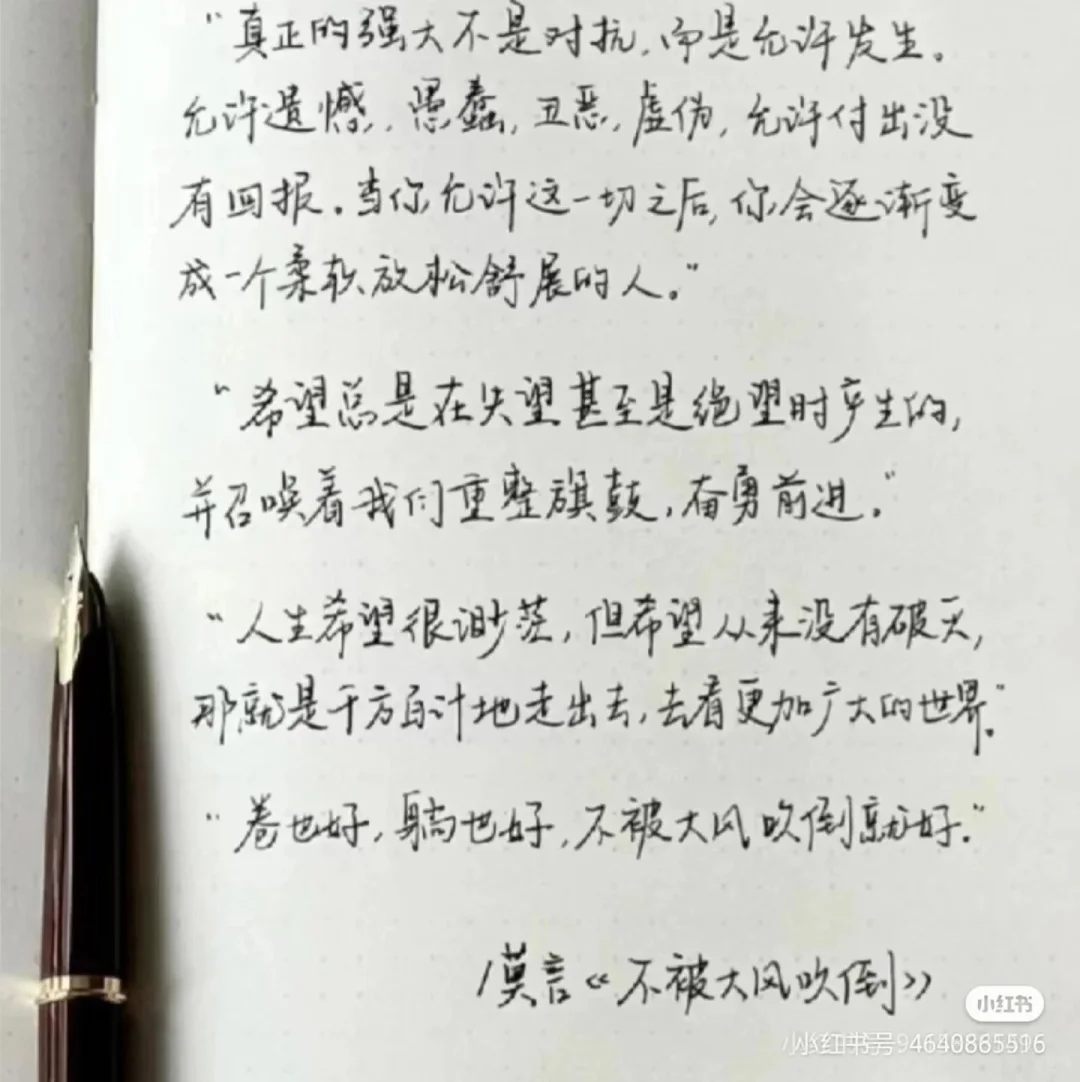 “真正的强大不是对抗，而是允许发生。
允许遗憾，愚蠢，丑恶，虚伪，允许付出没
有回报。当你允许这一切之后，你会逐渐变
成一个柔软放松舒展的人。”
“希望总是在失望甚至是绝望时产生的，
并召唤着我们重整旗鼓，奋勇前进。”
“人生希望很渺茫，但希望从来没有破灭，
那就是千方百计地走出去，去看更加广大的世界。”
“卷也好，躺也好，不被大风吹倒就好。”
/莫言《不被大风吹倒》
小红书
小红书号94640865516